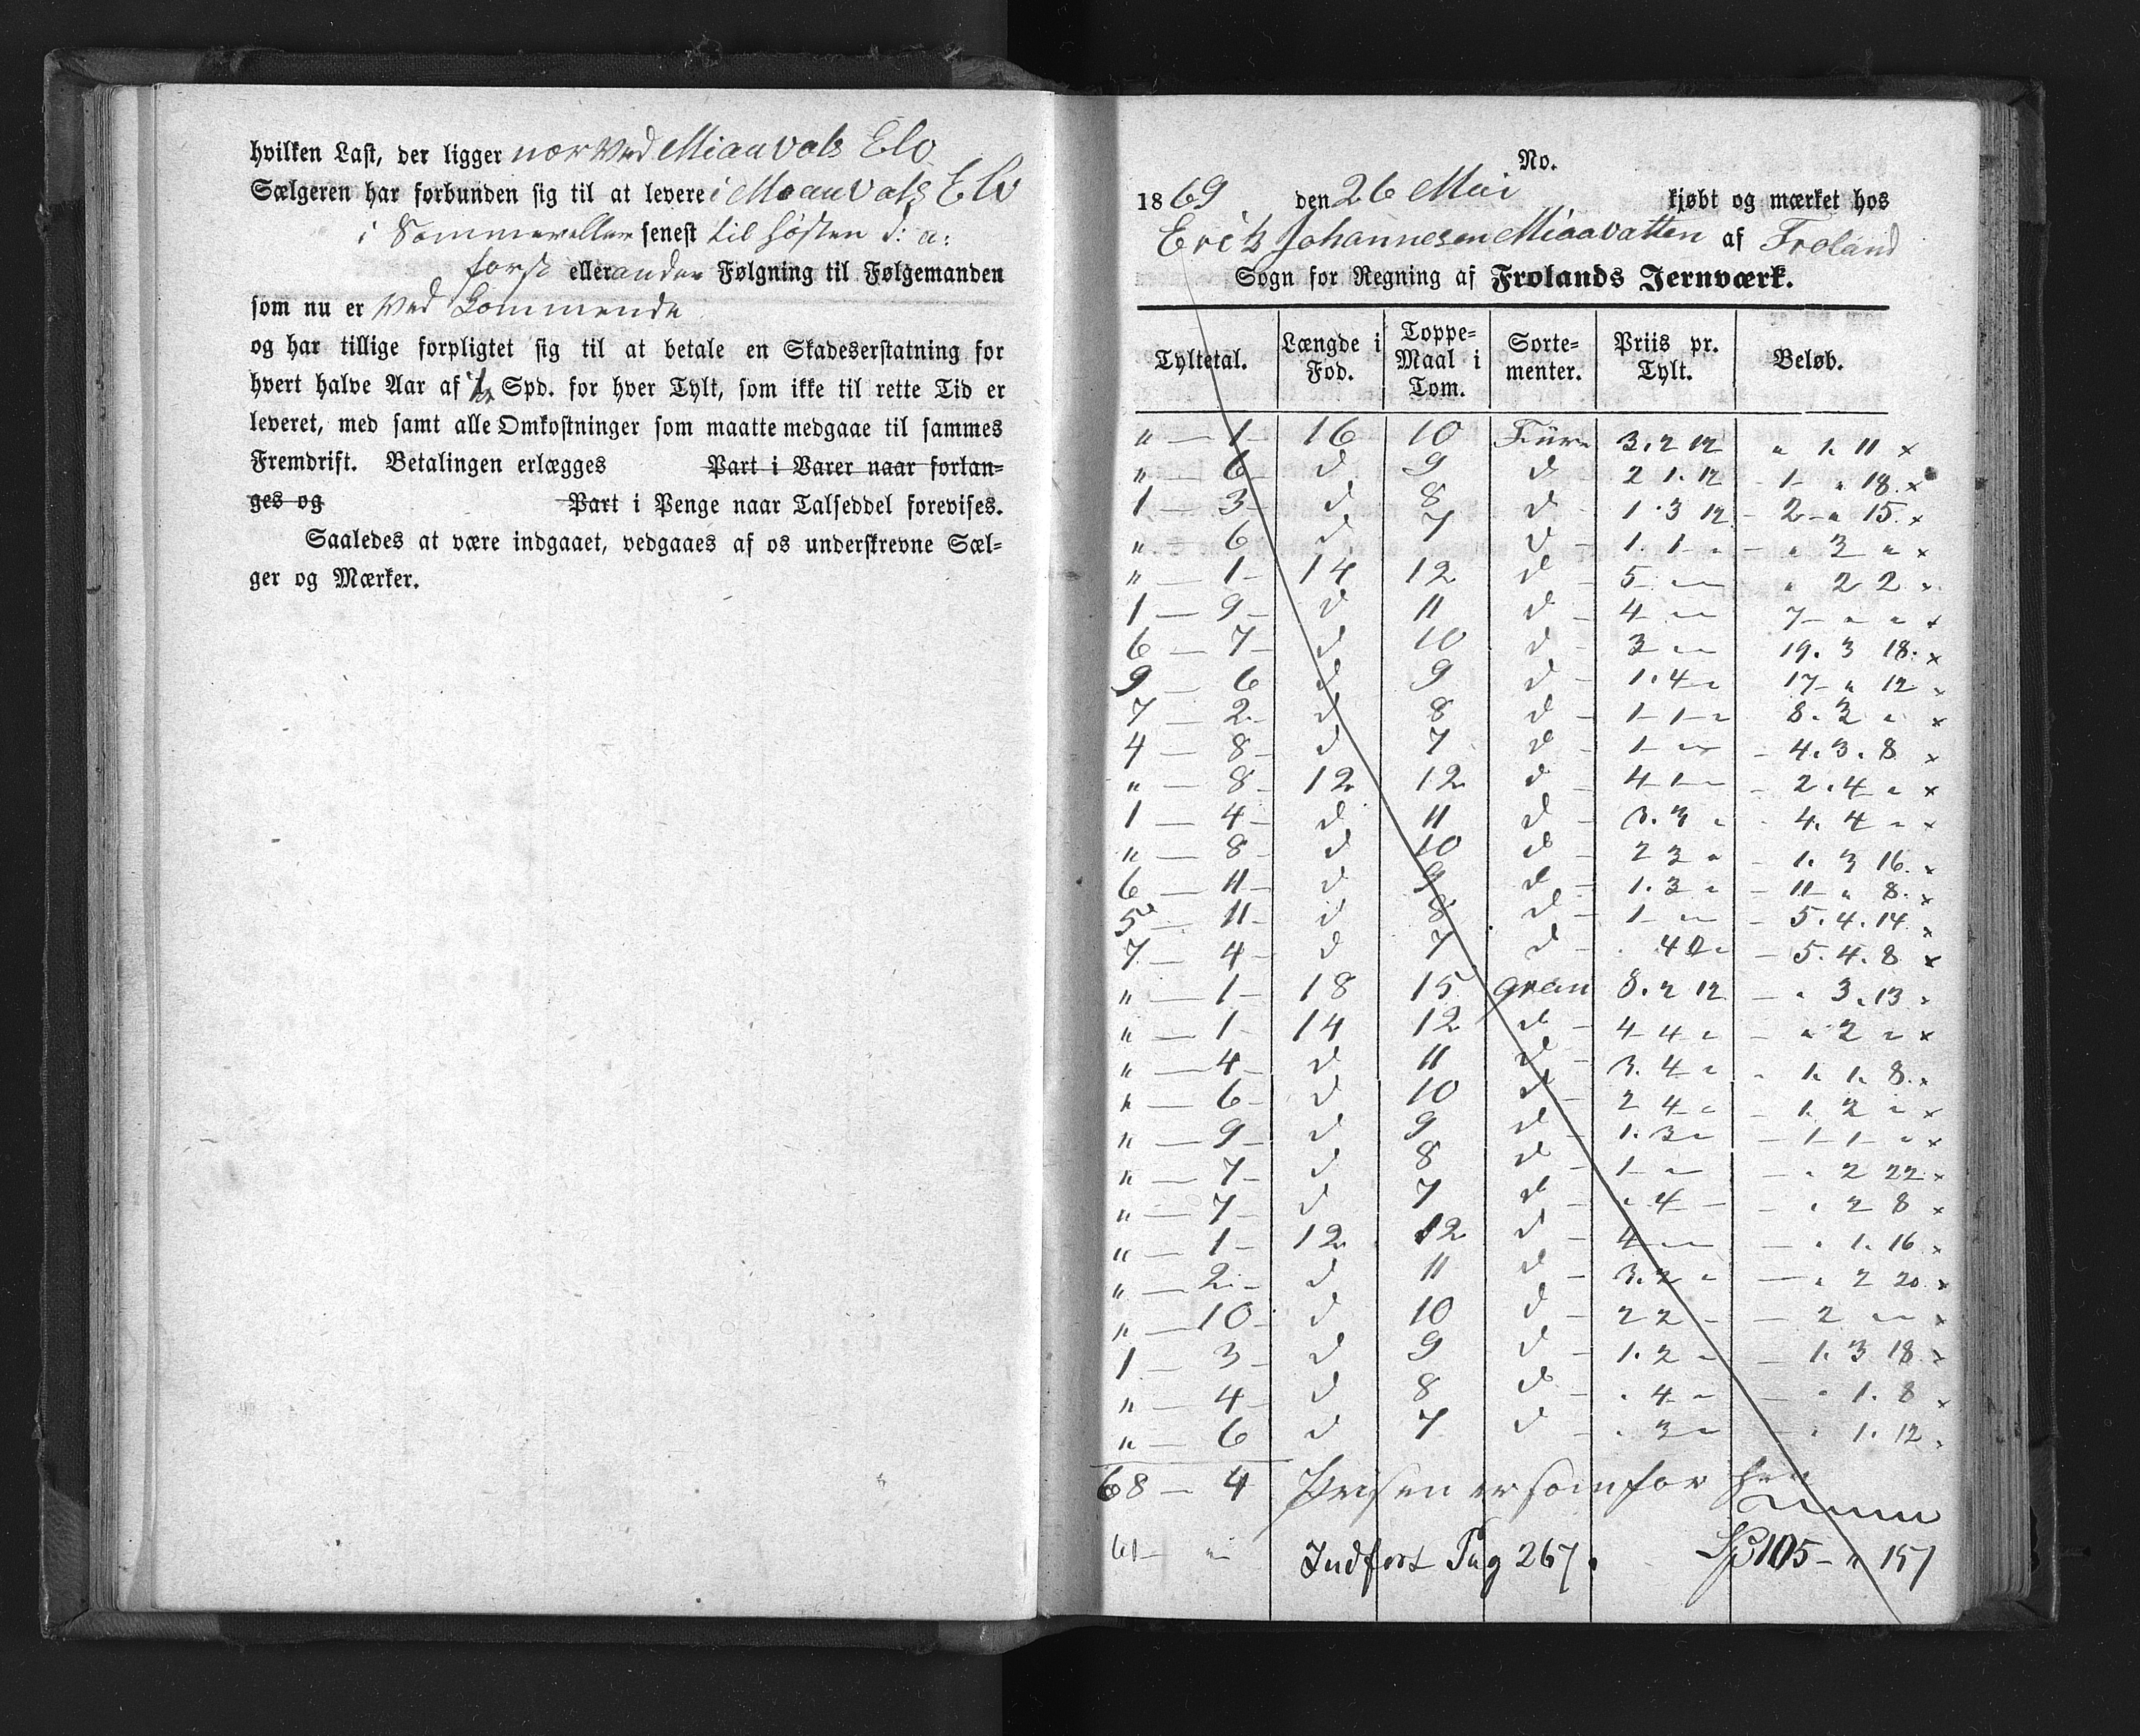 hvilken Last, der ligger nær ved Miauvats Elv
Sælgeren har forbunden sig til at levere i Moauvats Elv
i Sommer eller senest til høsten d: a:
først eller anden Følgning til Følgemanden
som nu er Ved Kommende
og har tillige forpligtet sig til at betale en Skadeserstatning for
hvert halve Aar af ½ Spd. for hver Tylt, som ikke til rette Tid er
leveret, med samt alle Omkostninger som maatte medgaae til sammes
Fremdrift. Betalingen erlægges Part i Varer naar forlan-
ges og Part i Penge naar Talseddel forevises.
Saaledes at være indgaaet, vedgaaes af os underskrevne Sæl-
ger og Mærker.
No.
1869 den 26 Mai kjøbt og mærket hos
Erik Johannesen Miaavatten af Froland
Sogn for Regning af Frolands Jernværk.
Tyltetal. Længde i Fod. Toppe-Maal i Tom. Sorte-menter. Priis pr. Tylt. Beløb.
" — 1 — 16 10 Furu 3. 2 12 " 1. 11 x
" — 6 d 9 d 2 1. 12 - 1 - " 18. x
1 — 3 — d 8 d - 1. 3 12 - 2 - " 15. x
" — 6 d 7 d - 1. 1 - " - " 3 " x
" — 1 - 14 12 d - 5 - " - " 2 2 x
1 — 9 - d 11 d - 4 - " - 7 - " " x
6 — 7 - d 10 d - 3 - " - 19. 3 18. x
9 — 6 d 9 d - 1. 4 " 17 - " 12 x
7 — 2 - d 8 d - 1 - 1 - " 8. 3 " x
4 — 8 - d 7 d - 1 - " - 4. 3. 8 x
" — 8 - 12 12 d - 4 - 1 - - 2. 4 " x
1 — 4 - d 11 d - 3. 3 " - 4. 4 " x
" — 8 - d 10 d - 2 3 " - 1. 3 16. x
6 — 11 - d 9 d - 1. 3 " - 11 - " 8. x
5 — 11 - d 8 d - 1 - " - 5. 4. 14 x
7 — 4 - d 7 d - . 4 " - 5. 4. 8 x
" — 1 - 18 15 gran 8. 2 12 - " 3. 13 x
" — 1 - 14 12 d - 4 4 " - " 2 " x
" — 4 - d 11 d - 3. 4 " - 1. 1. 8. x
" — 6 - d 10 d - 2 4 " - 1. 2 " x
" — 9 - d 9 d - 1. 3 " - 1 - 1 - " x
" — 7 - d 8 d - 1 - " - " 2 22 x
" — 7 - d 7 d - " 4 - - " 2 8 x
" — 1 - 12 12 d - 4 - " - " 1. 16 x
" — 2 - d 11 d - 3. 2 " - " 2 20 x
" — 10 - d 10 d - 2 2 - - 2 - " x
1 — 3 - d 9 d - 1. 2 - - 1. 3 18 x
" — 4 - d 8 d - . 4 - - " 1. 8 x
" — 6 d 7 d - . 3 " - " 1. 12 x
68 — 4 Prisen er som for
61 — " Indført Pag 267. Sp 105 - " 15